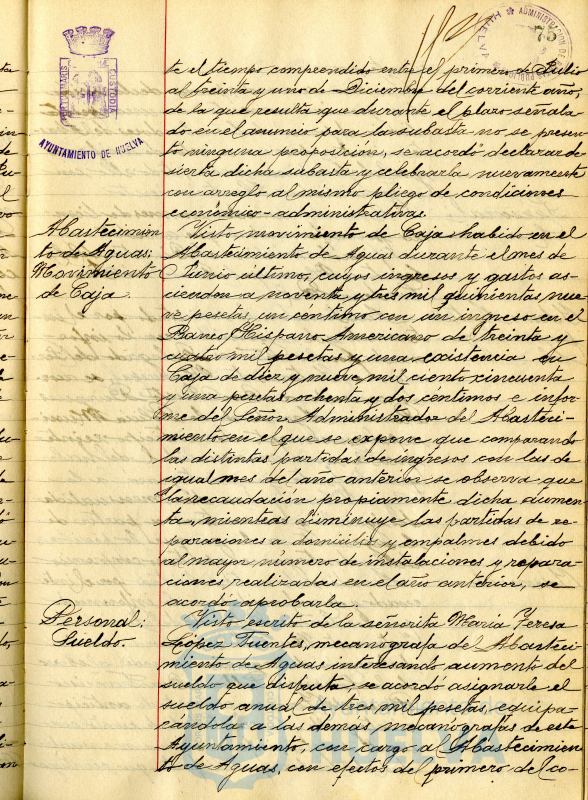 ADMINISTRACION DE
HUELVA
75
PORTUS MARIS
CUSTODIA
AYUNTAMIENTO DE HUELVA
te el tiempo comprendido entre el primero de Julio
al treinta y uno de Diciembre del corriente año,
de la que resulta que durante el plazo señala
do en el anuncio para la subasta no se presen
tó ninguna proposición, se acordó declarar de
sierta dicha subasta y celebrarla nuevamente
con arreglo al mismo pliego de condiciones
económico-administrativas.
Abastecimien
to de Aguas:
Movimiento
de Caja.
Visto movimiento de Caja habido en el
Abastecimiento de Aguas durante el mes de
Junio último, cuyos ingresos y gastos as-
cienden a noventa y tres mil quinientas nue
ve pesetas, un céntimo con un ingreso en el
Banco Hispano Americano de treinta y
cuatro mil pesetas y una existencia en
Caja de diez y nueve mil ciento cincuenta
y una pesetas ochenta y dos centimos e infor-
me del Señor Administrador del Abasteci-
miento en el que se expone que comparando
las distintas partidas de ingresos con las de
igual mes del año anterior se observa que
la recaudación propiamente dicha aumen
ta, mientras disminuye las partidas de re-
paraciones a domicilio y empalmes debido
al mayor número de instalaciones y repara-
ciones realizadas en el año anterior, se
acordó aprobarla.
Personal:
Sueldo.
Visto escrito de la señorita Maria Teresa
López Fuentes, mecanografa del Abasteci-
miento de Aguas interesando aumento del
sueldo que disfruta, se acordó asignarle el
sueldo anual de tres mil pesetas, equipa-
cándola a las demás mecanógrafas de este
Ayuntamiento, con cargo al Abastecimien
to de Aguas, con efectos del primero del co-